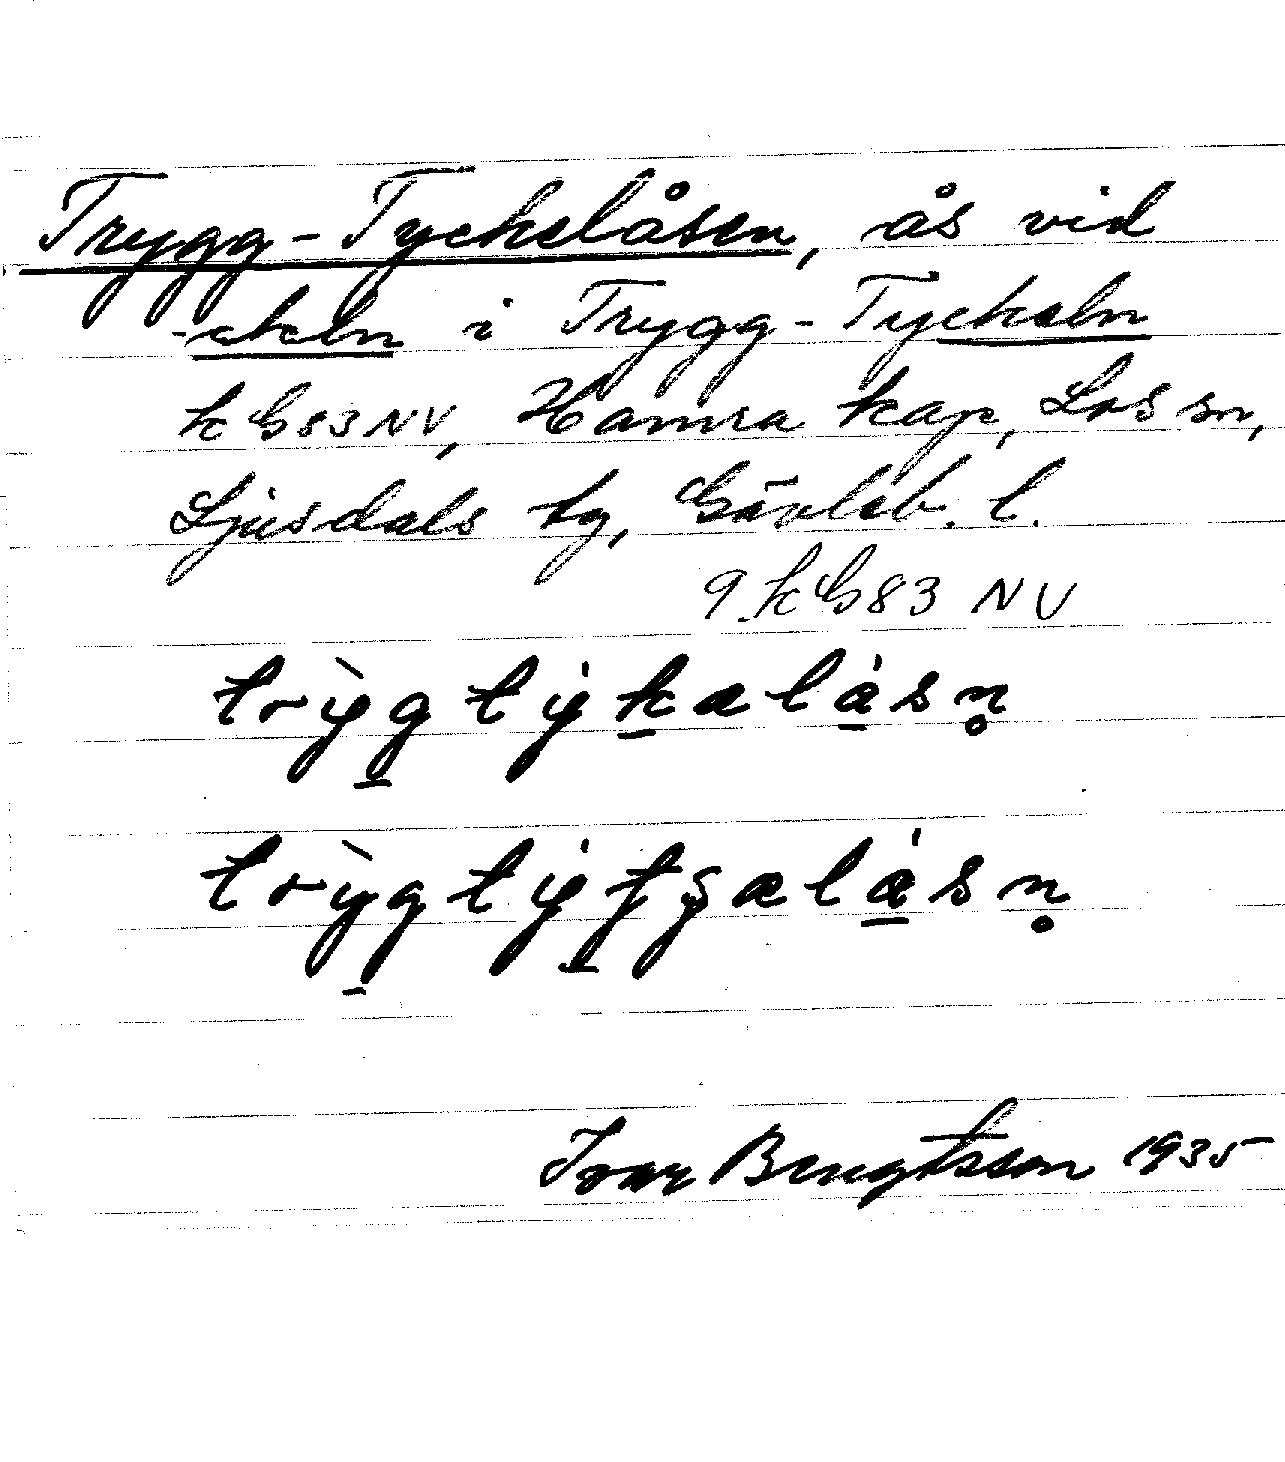 Trygg-Tyckelåsen, ås vid
-ckeln i Trygg-Tyckeln
kG83NV, Hamra kap, Los sn,
Ljusdals tg, Gävleb. l.
9 kG83 NV
trỳgtýkalåsn̥
trỳgtýtʂalåsn̥
Ivar Bengtsson 1935